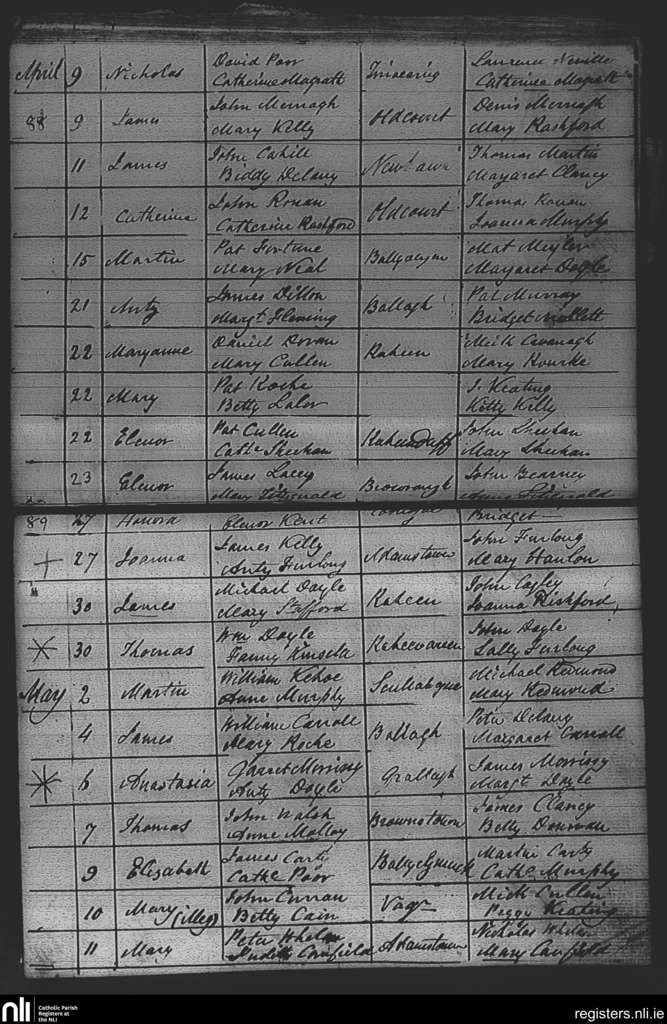 April 9 Nicholas David Poor Laurence Neville
Catherine Magrath Catherine Magrath
88 9 James John Murnagh Oldcourt Denis Murnagh
Mary Kelly Mary Rashford
11 James John Cahill Newtawn Thomas Martin
Biddy Delany Margaret Clancy
12 Catherine John Ronan Oldcourt Thomas Ronan
Catherine Rashford Joanna Murphy
15 Martin Pat Fortune Mat Meyler
Mary Neal Margaret Doyle
21 Anty James Dillon Ballagh Pat Murray
Margt. Fleming Bridget Mullett
22 Maryanne Daniel Doran Raheen Mick Cavanagh
Mary Cullen Mary Rourke
22 Mary Pat Roche J. Keating
Betty Lalor Kitty Kelly
22 Elenor Pat Cullen Raheenduff John Sheehan
Cathe Sheehan Mary Sheehan
23 Elenor James Lacey John Kearney
Mary Fitzgerald
89 27 Honora Elenor Kent Bridget
27 Joanna James Kelly Adamstown John Furlong
Anty Furlong Mary Hanlon
30 James Michael Doyle Raheen John Cosley
Mary Stafford Joanna Rishford
30 Thomas Wm Doyle John Doyle
Fanny Kinsela Sally Furlong
May 2 Martin William Kehoe Scullabogue Michael Redmond
Anne Murphy Mary Redmond
4 James William Carroll Ballagh Peter Delany
Mary Roche Margaret Carroll
6 Anastasia Garret Morrissy Grallagh James Morrissy
Anty Doyle Margt. Doyle
7 Thomas John Walsh Brownstown James Clancy
Anne Molloy Betty Donovan
9 Elizabeth James Carty Martin Carty
Cathe Poor Cathe Murphy
10 Mary (illeg) John Curran Vagr Mick Cullen
Betty Cain Peggy Keating
11 Mary Peter Whelan Adamstown Nicholas Whelan
Judith Canfield Mary Canfield
nli Catholic Parish
Registers at
the NLI
registers.nli.ie